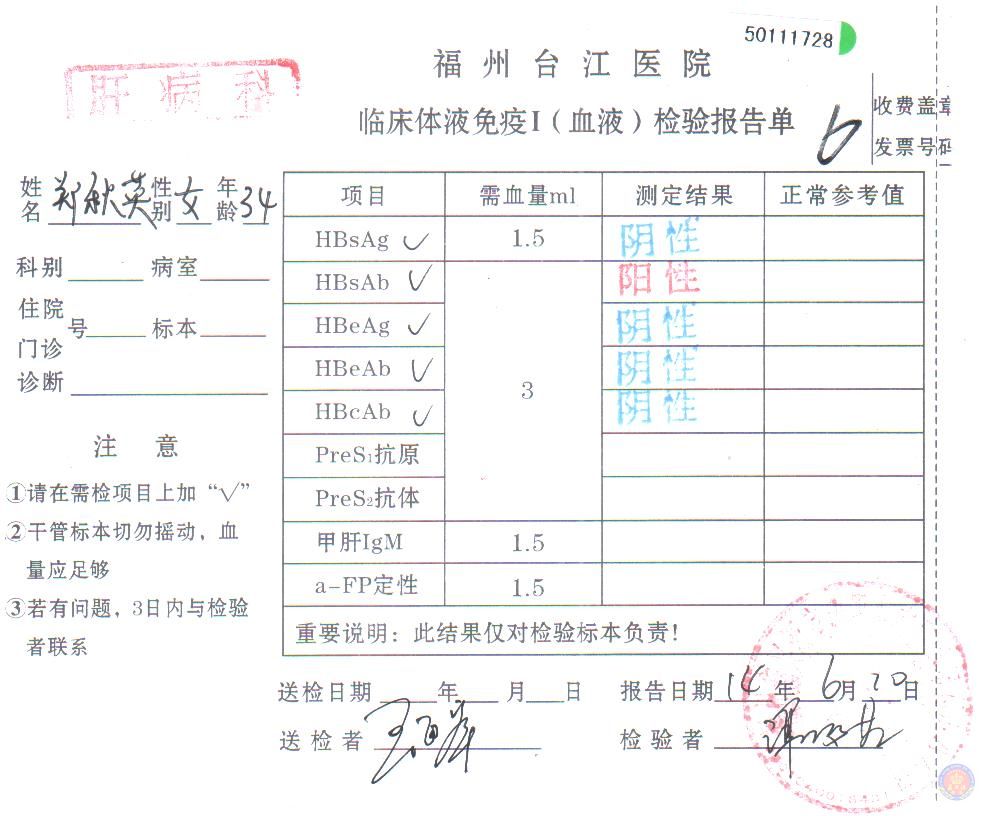 50111728
肝病科
福州台江医院
临床体液免疫I（血液）检验报告单
6
收费盖章
发票号码
姓名 郑秋英 性别 女 年龄 34
科别 病室
住院
门诊 号 标本
诊断
注 意
①请在需检项目上加“√”
②干管标本切勿摇动，血
量应足够
③若有问题，3日内与检验
者联系
项目 需血量ml 测定结果 正常参考值
HBsAg √ 1.5 阴性
HBsAb √ 阳性
HBeAg √ 阴性
HBeAb √ 3 阴性
HBcAb √ 阴性
PreS₁抗原
PreS₂抗体
甲肝IgM 1.5
a-FP定性 1.5
重要说明：此结果仅对检验标本负责！
送检日期 年 月 日 报告日期 14 年 6 月 20 日
送检者 检验者